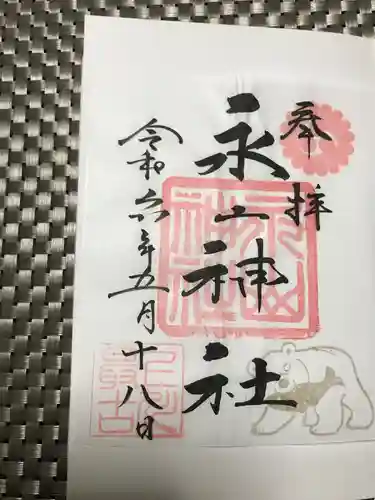 奉拝
永山神社
令和六年五月十八日